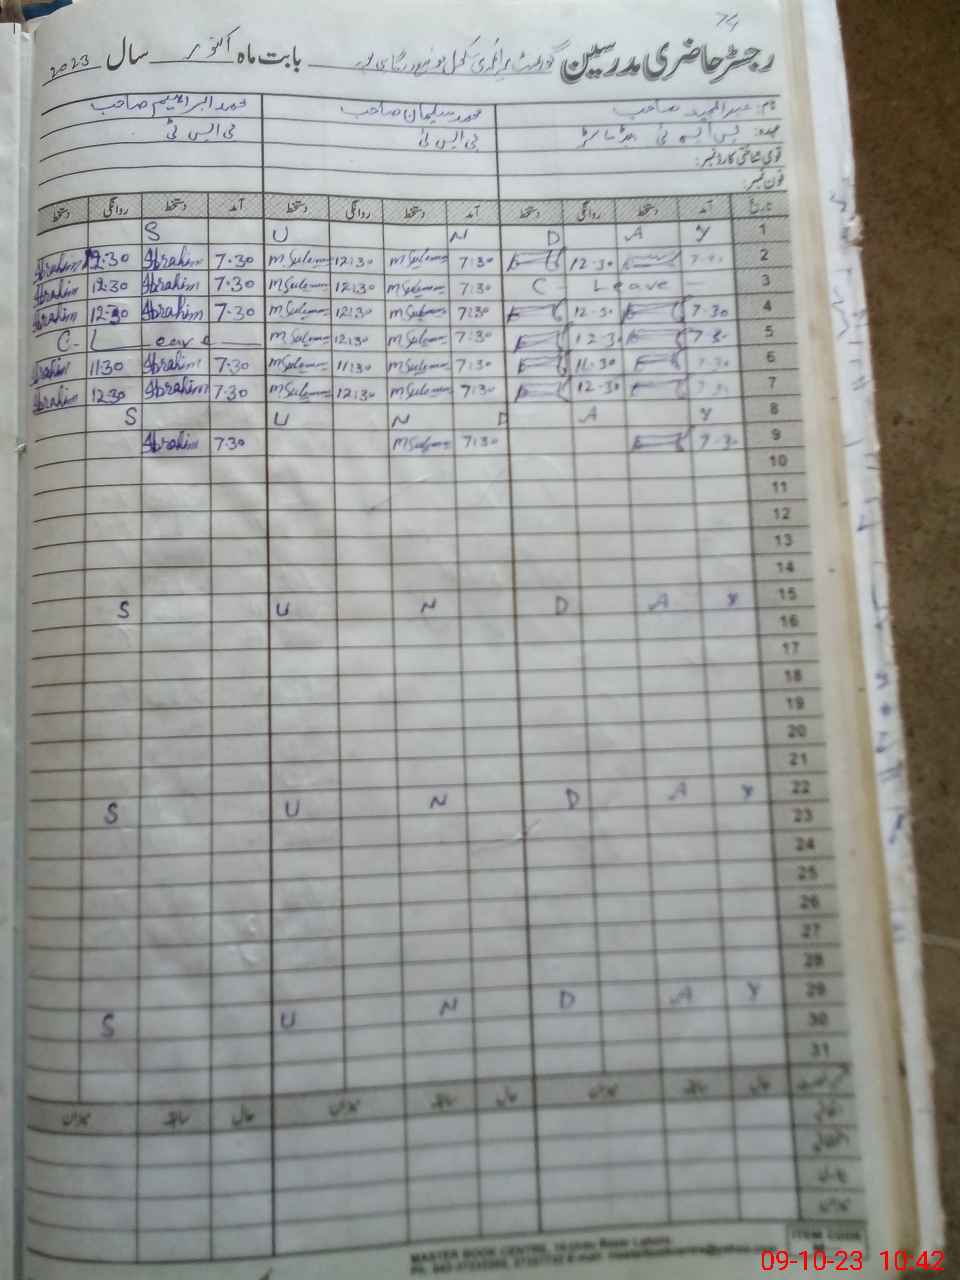 74
رجسٹر حاضری مدرسین گورنمنٹ پرائمری سکول بابت ماہ اکتوبر سال 2023
نام: عبدالمجید صاحب محمد سلیمان صاحب محمد ابراہیم صاحب
عہدہ: پی ایس ٹی ہیڈ ماسٹر پی ایس ٹی پی ایس ٹی
قومی شناختی کارڈ نمبر:
فون نمبر:
تاریخ آمد دستخط روانگی دستخط آمد دستخط روانگی دستخط آمد دستخط روانگی دستخط
S U N D A Y 1
Ibrahim 12.30 Ibrahim 7.30 M Suleman 12:30 M Suleman 7:30 12.30 7.30 2
Ibrahim 12.30 Ibrahim 7.30 M Suleman 12:30 M Suleman 7:30 C - Leave - 3
Ibrahim 12.30 Ibrahim 7.30 M Suleman 12:30 M Suleman 7:30 12.30 7.30 4
C- Leave M Suleman 12:30 M Suleman 7:30 12.30 7.30 5
Ibrahim 11.30 Ibrahim 7.30 M Suleman 11:30 M Suleman 7:30 11.30 7.30 6
Ibrahim 12.30 Ibrahim 7.30 M Suleman 12:30 M Suleman 7:30 12.30 7.30 7
S U N D A Y 8
Ibrahim 7.30 M Suleman 7:30 7.30 9
10
11
12
13
14
S U N D A Y 15
16
17
18
19
20
21
S U N D A Y 22
23
24
25
26
27
28
S U N D A Y 29
30
31
حال سابقہ میزان حال سابقہ میزان حال سابقہ میزان
اتفاقی
میزان
ITEM CODE
MASTER BOOK CENTRE, Lahore
09-10-23 10:42